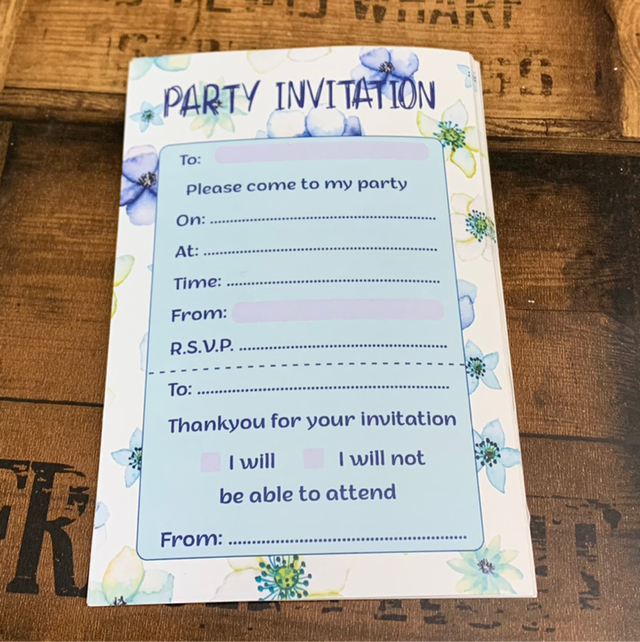 WHARF
GS
PARTY INVITATION
To:
Please come to my party
On: ........................................
At: ........................................
Time: ........................................
From:
R.S.V.P. ........................................
To: ........................................
Thankyou for your invitation
I will I will not
be able to attend
From: ........................................